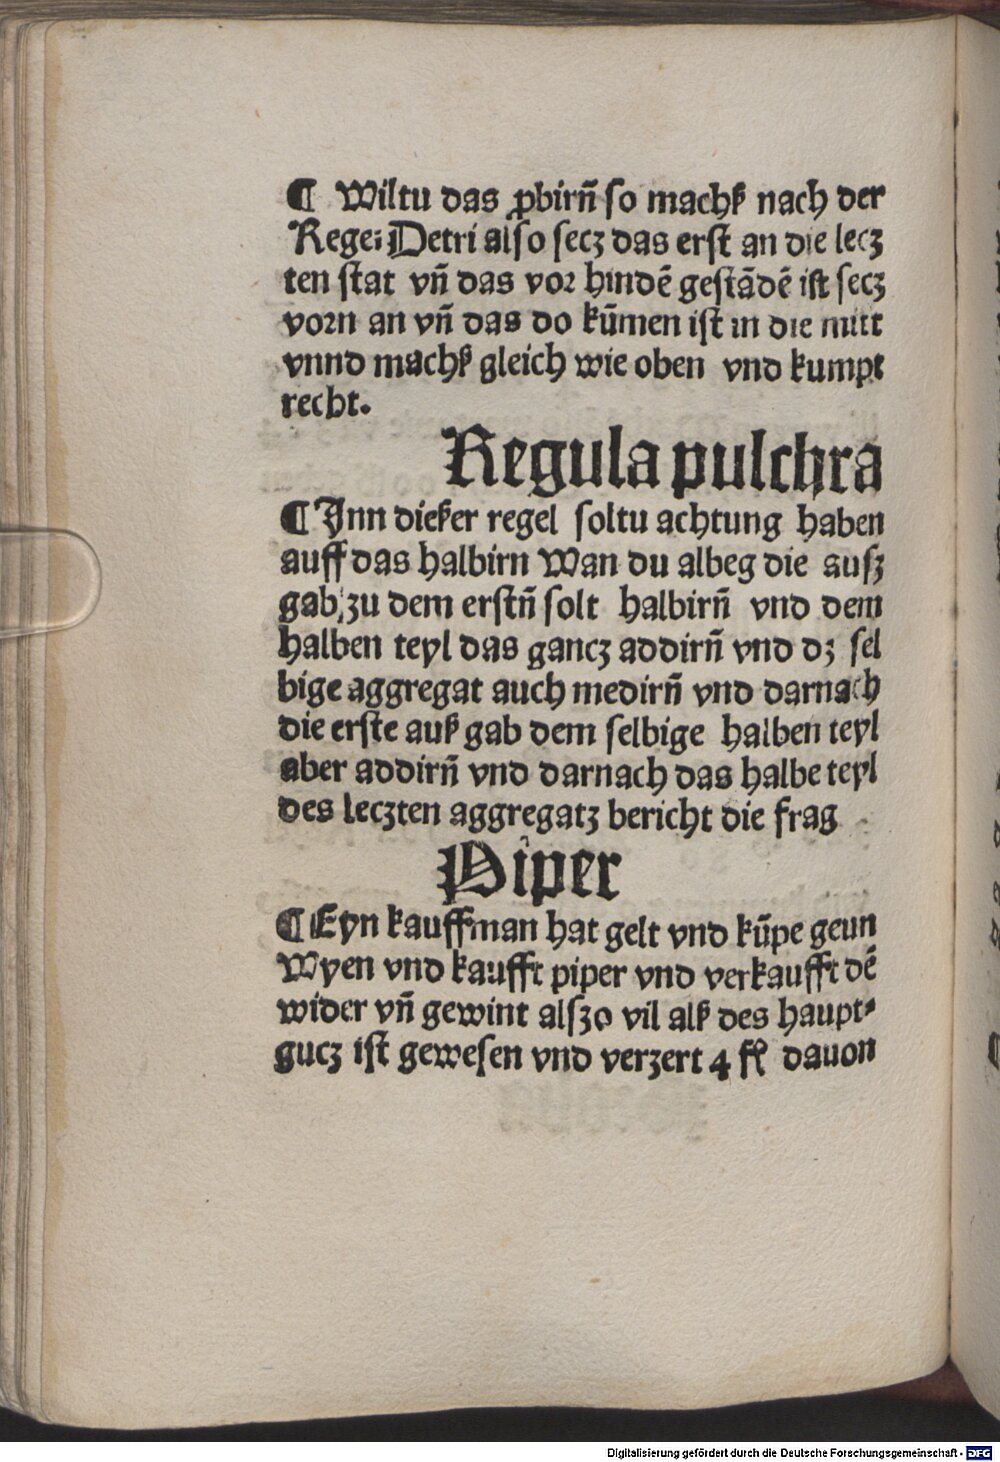 ¶ Wiltu das ꝓbirñ so machß nach der
Regel Detri also secz das erst an die lecz
ten stat vñ das vor hindē gestādē ist secz
vorn an vñ das do kūmen ist in die mitt
vnnd machß gleich wie oben vnd kumpt
recht.
Regula pulchra
¶ Inn dießer regel soltu achtung haben
auff das halbirn Wan du albeg die ausz
gab zu dem erstñ solt halbirñ vnd dem
halben teyl das gancz addirñ vnd dz sel
bige aggregat auch medirñ vnd darnach
die erste auß gab dem selbige halben teyl
aber addirñ vnd darnach das halbe teyl
des leczten aggregatz bericht die frag
Piper
¶ Eyn kauffman hat gelt vnd kūpe geun
Wyen vnd kaufft piper vnd verkaufft dē
wider vñ gewint alszo vil alß des haupt⸗
gucz ist gewesen vnd verzert 4 fl dauon
Digitalisierung gefördert durch die Deutsche Forschungsgemeinschaft - DFG